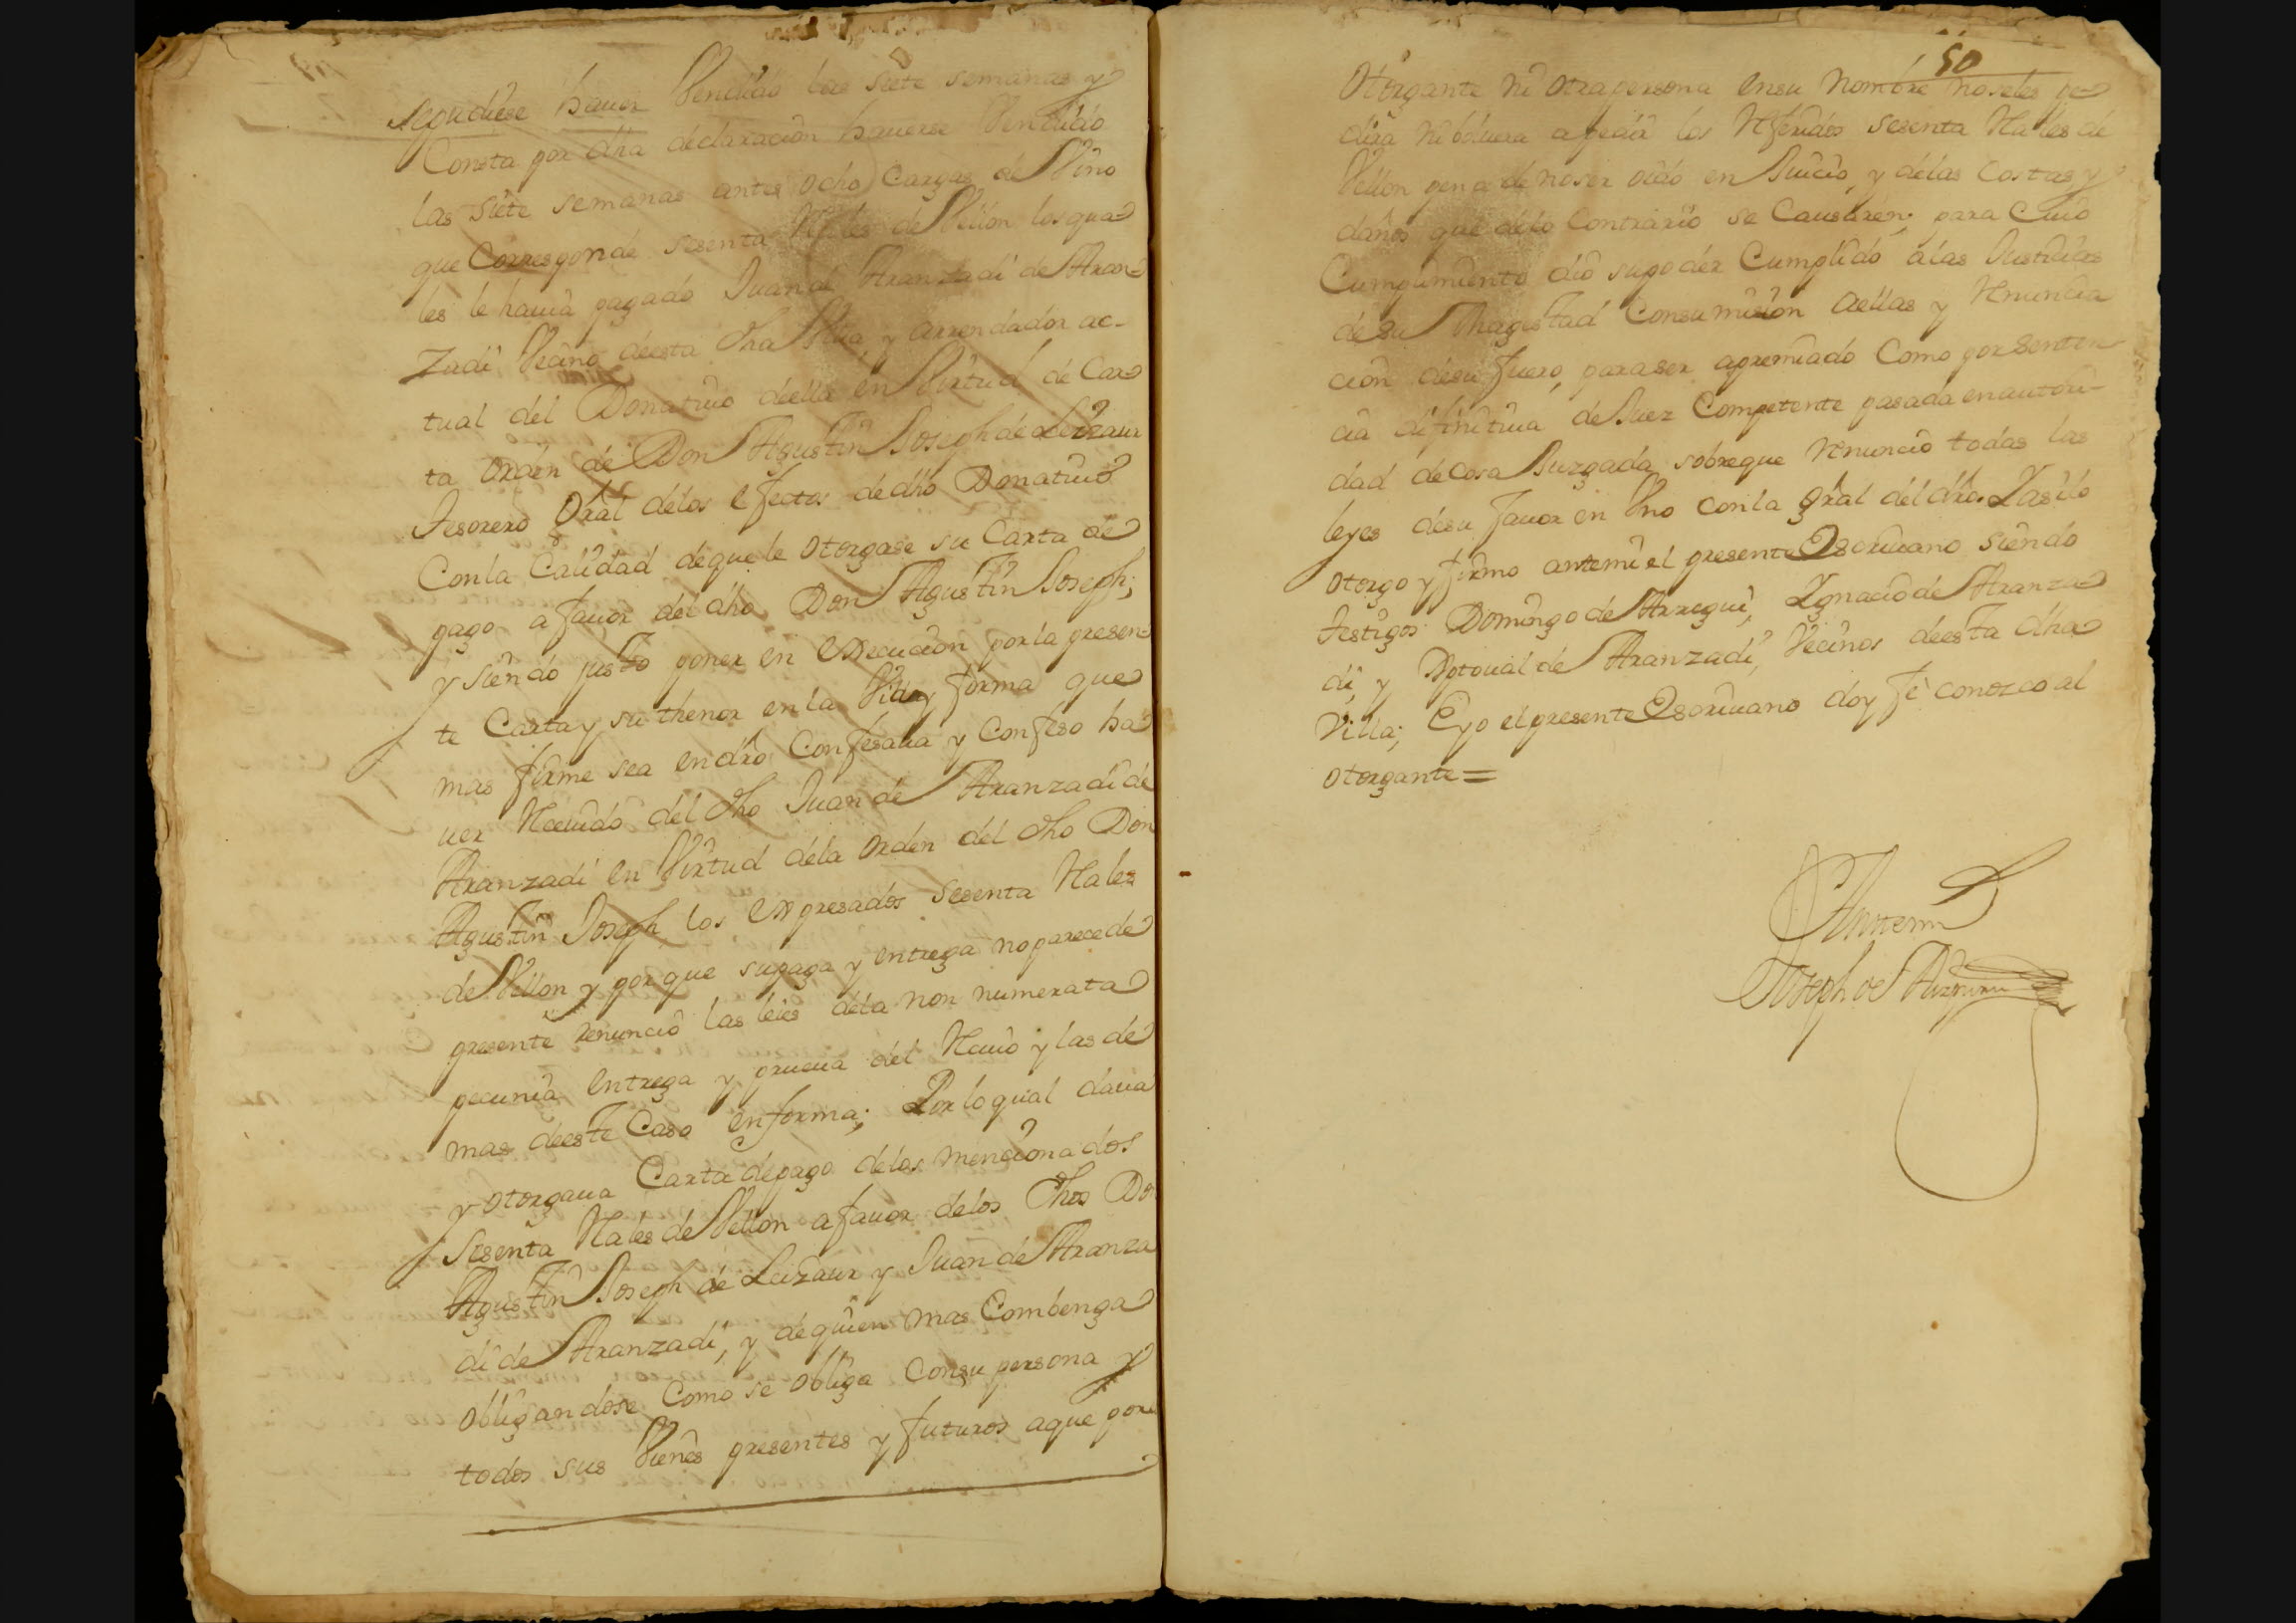 se pudiese hauer Vendido las siete semanas y
Consta por dha declaracion hauerse Vendido
las siete semanas antes ocho Cargas de Vino
que Corresponde sesenta Rales de Vellon los qua-
les le hauia pagado Juan de Aranzadi de Aran-
zadi Vecino de esta dha Villa y arrendador ac-
tual del Donatiuo de ella en Virtud de Car-
ta orden de Don Agustin Joseph de Leizaur
Tesorero Gral de los efectos de dho Donatiuo
Con la Calidad de que le otorgase su Carta de
pago a fauor del dho Don Agustin Joseph;
y siendo justo poner en execucion por la presen-
te Carta y su thenor en la Via y forma que
mas firme sea en dro Confesaua y Confeso ha-
uer Receuido del dho Juan de Aranzadi de
Aranzadi en Virtud de la orden del dho Don
Agustin Joseph los expresados sesenta Rales
de Vellon y por que su paga y entrega no parece de
presente renuncio las leies de la non numerata
pecunia entrega y prueua del Reciuo y las de
mas de este Caso en forma; Por lo qual daua
y otorgaua Carta de pago de los mencionados
Sesenta Rales de Vellon a fauor de los dhos Don
Agustin Joseph de Leizaur y Juan de Aranza
di de Aranzadi, y de quien mas Combenga
obligandose Como se obliga Con su persona y
todos sus Vienes presentes y futuros a que por
50
Otorgante ni otra persona en su nombre no seles pe
dira ni boluera a pedir los Referidos sesenta Rales de
Vellon pena de no ser oido en Juicio, y de las Costas y
daños que de lo Contrario se Causaren; para Cuio
Cumplimiento dio su poder Cumplido a las Justicias
de su Magestad Con sumision a ellas y Renuncia
cion de su fuero, para ser apremiado Como por senten
cia difinitiua de Juez Competente pasada en autori-
dad de Cosa Juzgada sobre que Renuncio todas las
leyes de su fauor en Vno con la gral del dro. Y asi lo
otorgo y firmo ante mi el presente Escriuano siendo
testigos Domingo de Arregui, Ignacio de Aranza
di, y Xptoual de Aranzadi, Vecinos de esta dha
Villa; E yo el presente Escriuano doy fe conozco al
otorgante=
Ante mi
Joseph de